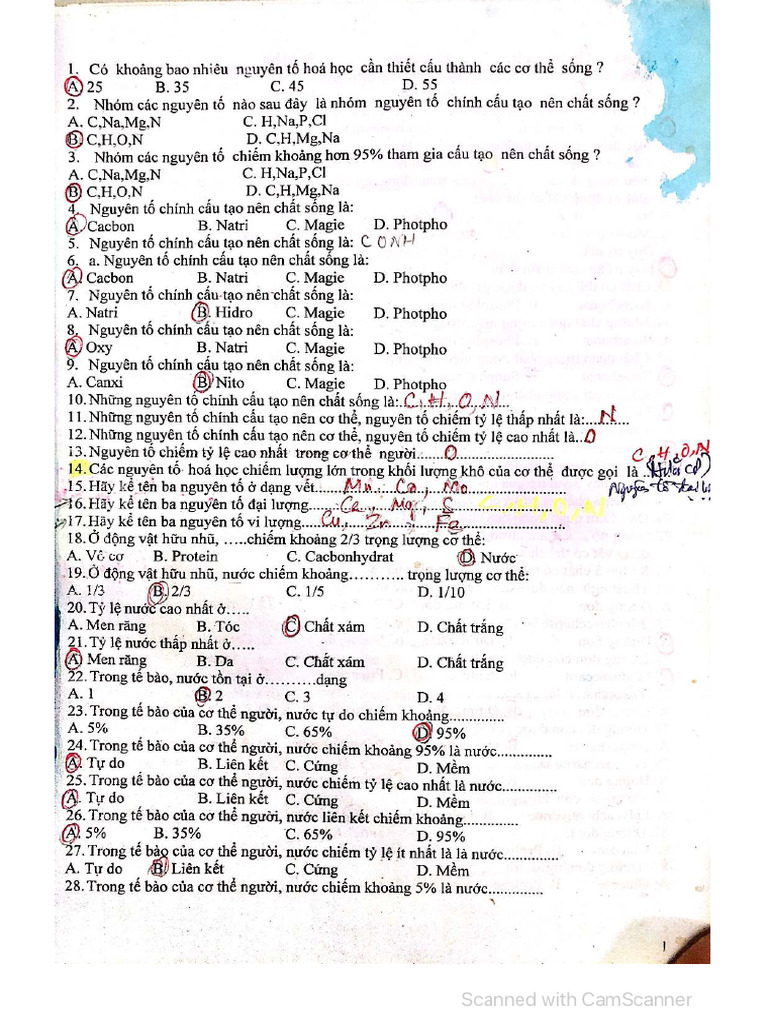 1. Có khoảng bao nhiêu nguyên tố hoá học cần thiết cấu thành các cơ thể sống ?
A. 25 B. 35 C. 45 D. 55
2. Nhóm các nguyên tố nào sau đây là nhóm nguyên tố chính cấu tạo nên chất sống ?
A. C,Na,Mg,N C. H,Na,P,Cl
B. C,H,O,N D. C,H,Mg,Na
3. Nhóm các nguyên tố chiếm khoảng hơn 95% tham gia cấu tạo nên chất sống ?
A. C,Na,Mg,N C. H,Na,P,Cl
B. C,H,O,N D. C,H,Mg,Na
4. Nguyên tố chính cấu tạo nên chất sống là:
A. Cacbon B. Natri C. Magie D. Photpho
5. Nguyên tố chính cấu tạo nên chất sống là: C O N H
6. a. Nguyên tố chính cấu tạo nên chất sống là:
A. Cacbon B. Natri C. Magie D. Photpho
7. Nguyên tố chính cấu tạo nên chất sống là:
A. Natri B. Hidro C. Magie D. Photpho
8. Nguyên tố chính cấu tạo nên chất sống là:
A. Oxy B. Natri C. Magie D. Photpho
9. Nguyên tố chính cấu tạo nên chất sống là:
A. Canxi B. Nito C. Magie D. Photpho
10. Những nguyên tố chính cấu tạo nên chất sống là: C, H, O, N
11. Những nguyên tố chính cấu tạo nên cơ thể, nguyên tố chiếm tỷ lệ thấp nhất là:....N....
12. Những nguyên tố chính cấu tạo nên cơ thể, nguyên tố chiếm tỷ lệ cao nhất là:..O
13. Nguyên tố chiếm tỷ lệ cao nhất trong cơ thể người......O......
C, H, O, N
14. Các nguyên tố hoá học chiếm lượng lớn trong khối lượng khô của cơ thể được gọi là
15. Hãy kể tên ba nguyên tố ở dạng vết......Mn, Co, Mo......
16. Hãy kể tên ba nguyên tố đại lượng......Ca, Mg, S C, H, O, N
17. Hãy kể tên ba nguyên tố vi lượng......Cu, Zn, Fe......
18. Ở động vật hữu nhũ, …..chiếm khoảng 2/3 trọng lượng cơ thể:
A. Vô cơ B. Protein C. Cacbonhydrat D. Nước
19. Ở động vật hữu nhũ, nước chiếm khoảng………. trọng lượng cơ thể:
A. 1/3 B. 2/3 C. 1/5 D. 1/10
20. Tỷ lệ nước cao nhất ở…..
A. Men răng B. Tóc C. Chất xám D. Chất trắng
21. Tỷ lệ nước thấp nhất ở…..
A. Men răng B. Da C. Chất xám D. Chất trắng
22. Trong tế bào, nước tồn tại ở……….dạng
A. 1 B. 2 C. 3 D. 4
23. Trong tế bào của cơ thể người, nước tự do chiếm khoảng.............
A. 5% B. 35% C. 65% D. 95%
24. Trong tế bào của cơ thể người, nước chiếm khoảng 95% là nước.............
A. Tự do B. Liên kết C. Cứng D. Mềm
25. Trong tế bào của cơ thể người, nước chiếm tỷ lệ cao nhất là nước.............
A. Tự do B. Liên kết C. Cứng D. Mềm
26. Trong tế bào của cơ thể người, nước liên kết chiếm khoảng.............
A. 5% B. 35% C. 65% D. 95%
27. Trong tế bào của cơ thể người, nước chiếm tỷ lệ ít nhất là là nước.............
A. Tự do B. Liên kết C. Cứng D. Mềm
28. Trong tế bào của cơ thể người, nước chiếm khoảng 5% là nước.............
1
Scanned with CamScanner